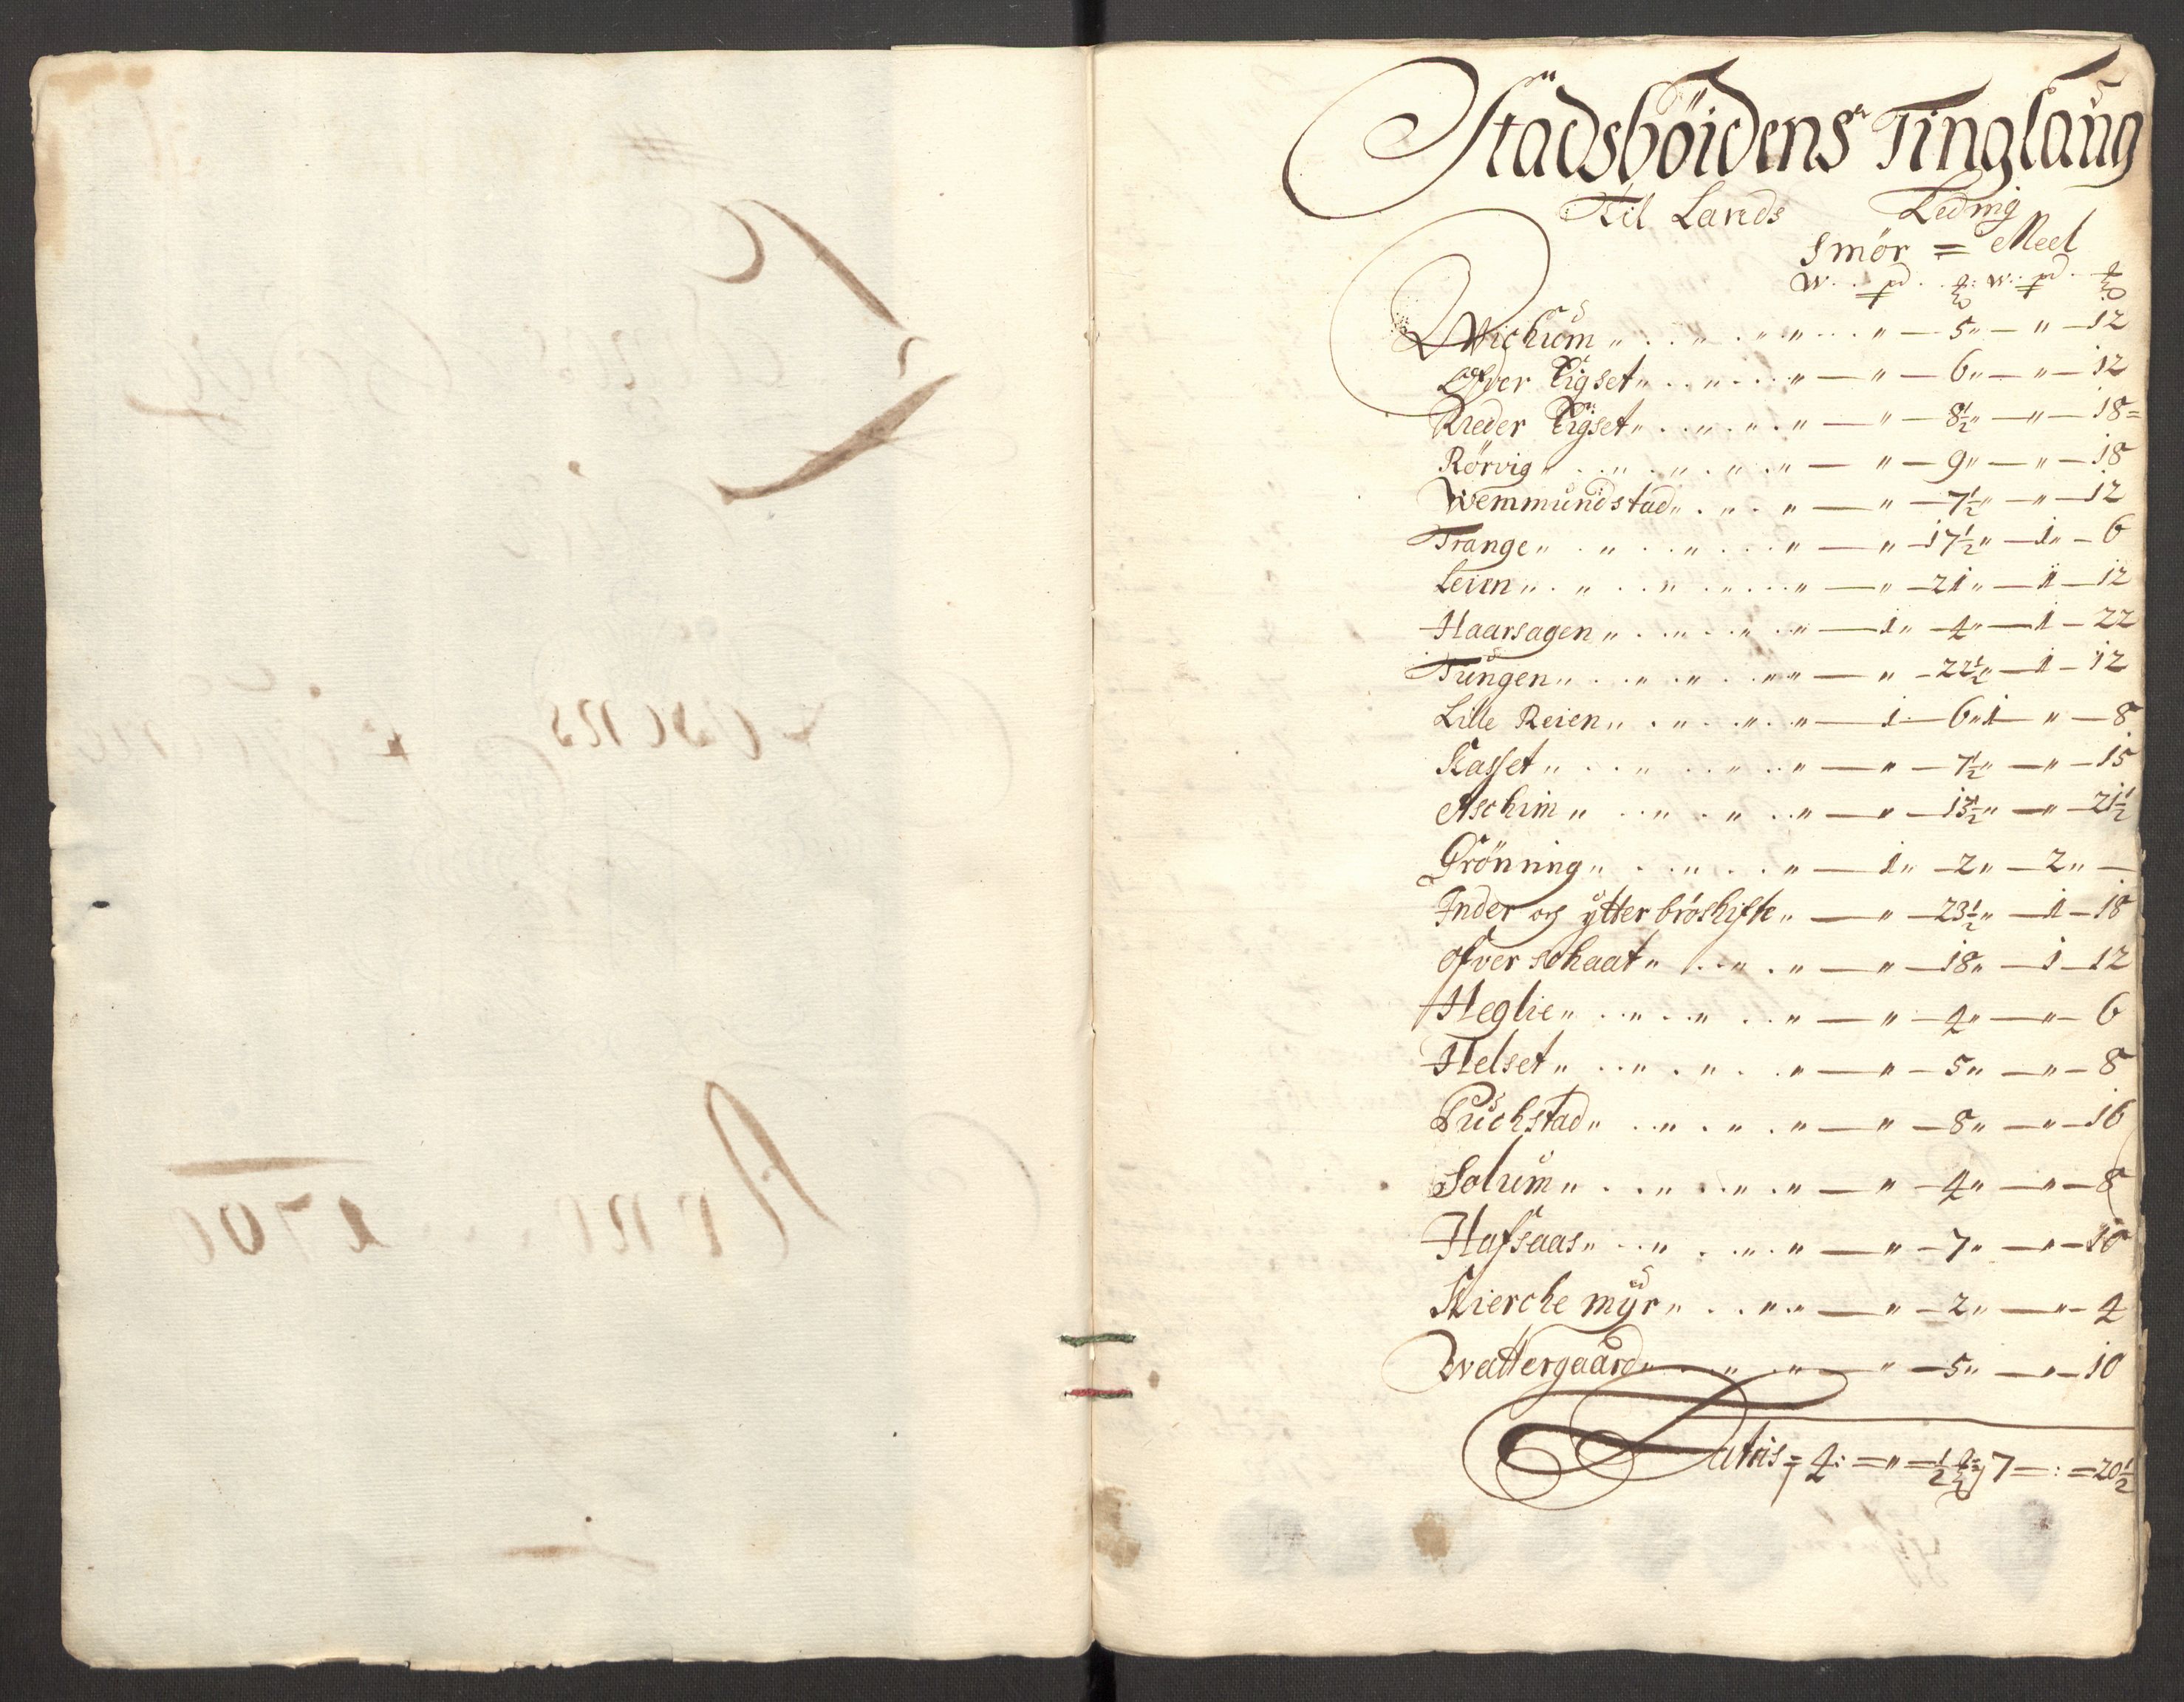 Stadsbøidens Tinglaug
Til Lands Leding
Smör = Meel
W. pd. W. pd.
Wichum „ . „ . „ „ . „ — 5 „ — „ — 12
Øfver Eigset „ . „ . „ — „ — 6 „ — „ — 12
Neder Eigset „ . „ . „ . „ — „ — 8½ „ — „ — 18 =
Rörvig „ . „ . „ . „ . „ — „ — 9 „ — „ — 18
Wemmundstad „ . „ . „ — „ — 7½ „ — „ — 12
Trange „ . „ . „ . „ — „ — 17½ „ — 1 „ — 6
Leirn „ . „ . „ . „ . „ — „ — 21 „ — 1 — 12
Haarsagen „ . „ . „ . „ — 1 „ — 4 „ — 1 — 22
Tungen „ . „ . „ . „ „ — „ — 22½ „ — 1 — 12
Lille Reien „ . „ . „ . „ — 1 — 6 „ 1 — „ — 8
Kasset „ . „ . „ . „ — „ — 7½ „ — „ — 15
Aschim „ . „ . „ . „ — „ — 13½ „ — „ — 21½
Grönning „ . „ . „ — 1 „ — 2 „ — 2 „ —
Inder og ytter bröskifte „ — „ — 23½ „ — 1 — 18
Øfver schaat „ . „ . „ — „ — 18 „ — 1 — 12
Heglie „ . „ . „ . „ — „ — 4 „ — „ — 6
Helset „ . „ . „ . „ — „ — 5 „ — „ — 8
Puchstad „ . „ . „ . „ — „ — 8 „ — „ — 16
Solum „ . „ . „ . „ — „ — 4 „ — „ — 8
Hafsaas „ . „ . „ . „ — „ — 7 „ — „ — 10
Kierche myr „ . „ „ — „ — 2 „ — „ — 4
Wattergaard „ . „ . „ — „ — 5 „ — „ — 10
Latris = 4 : = „ = ½ 7 = : = 20½